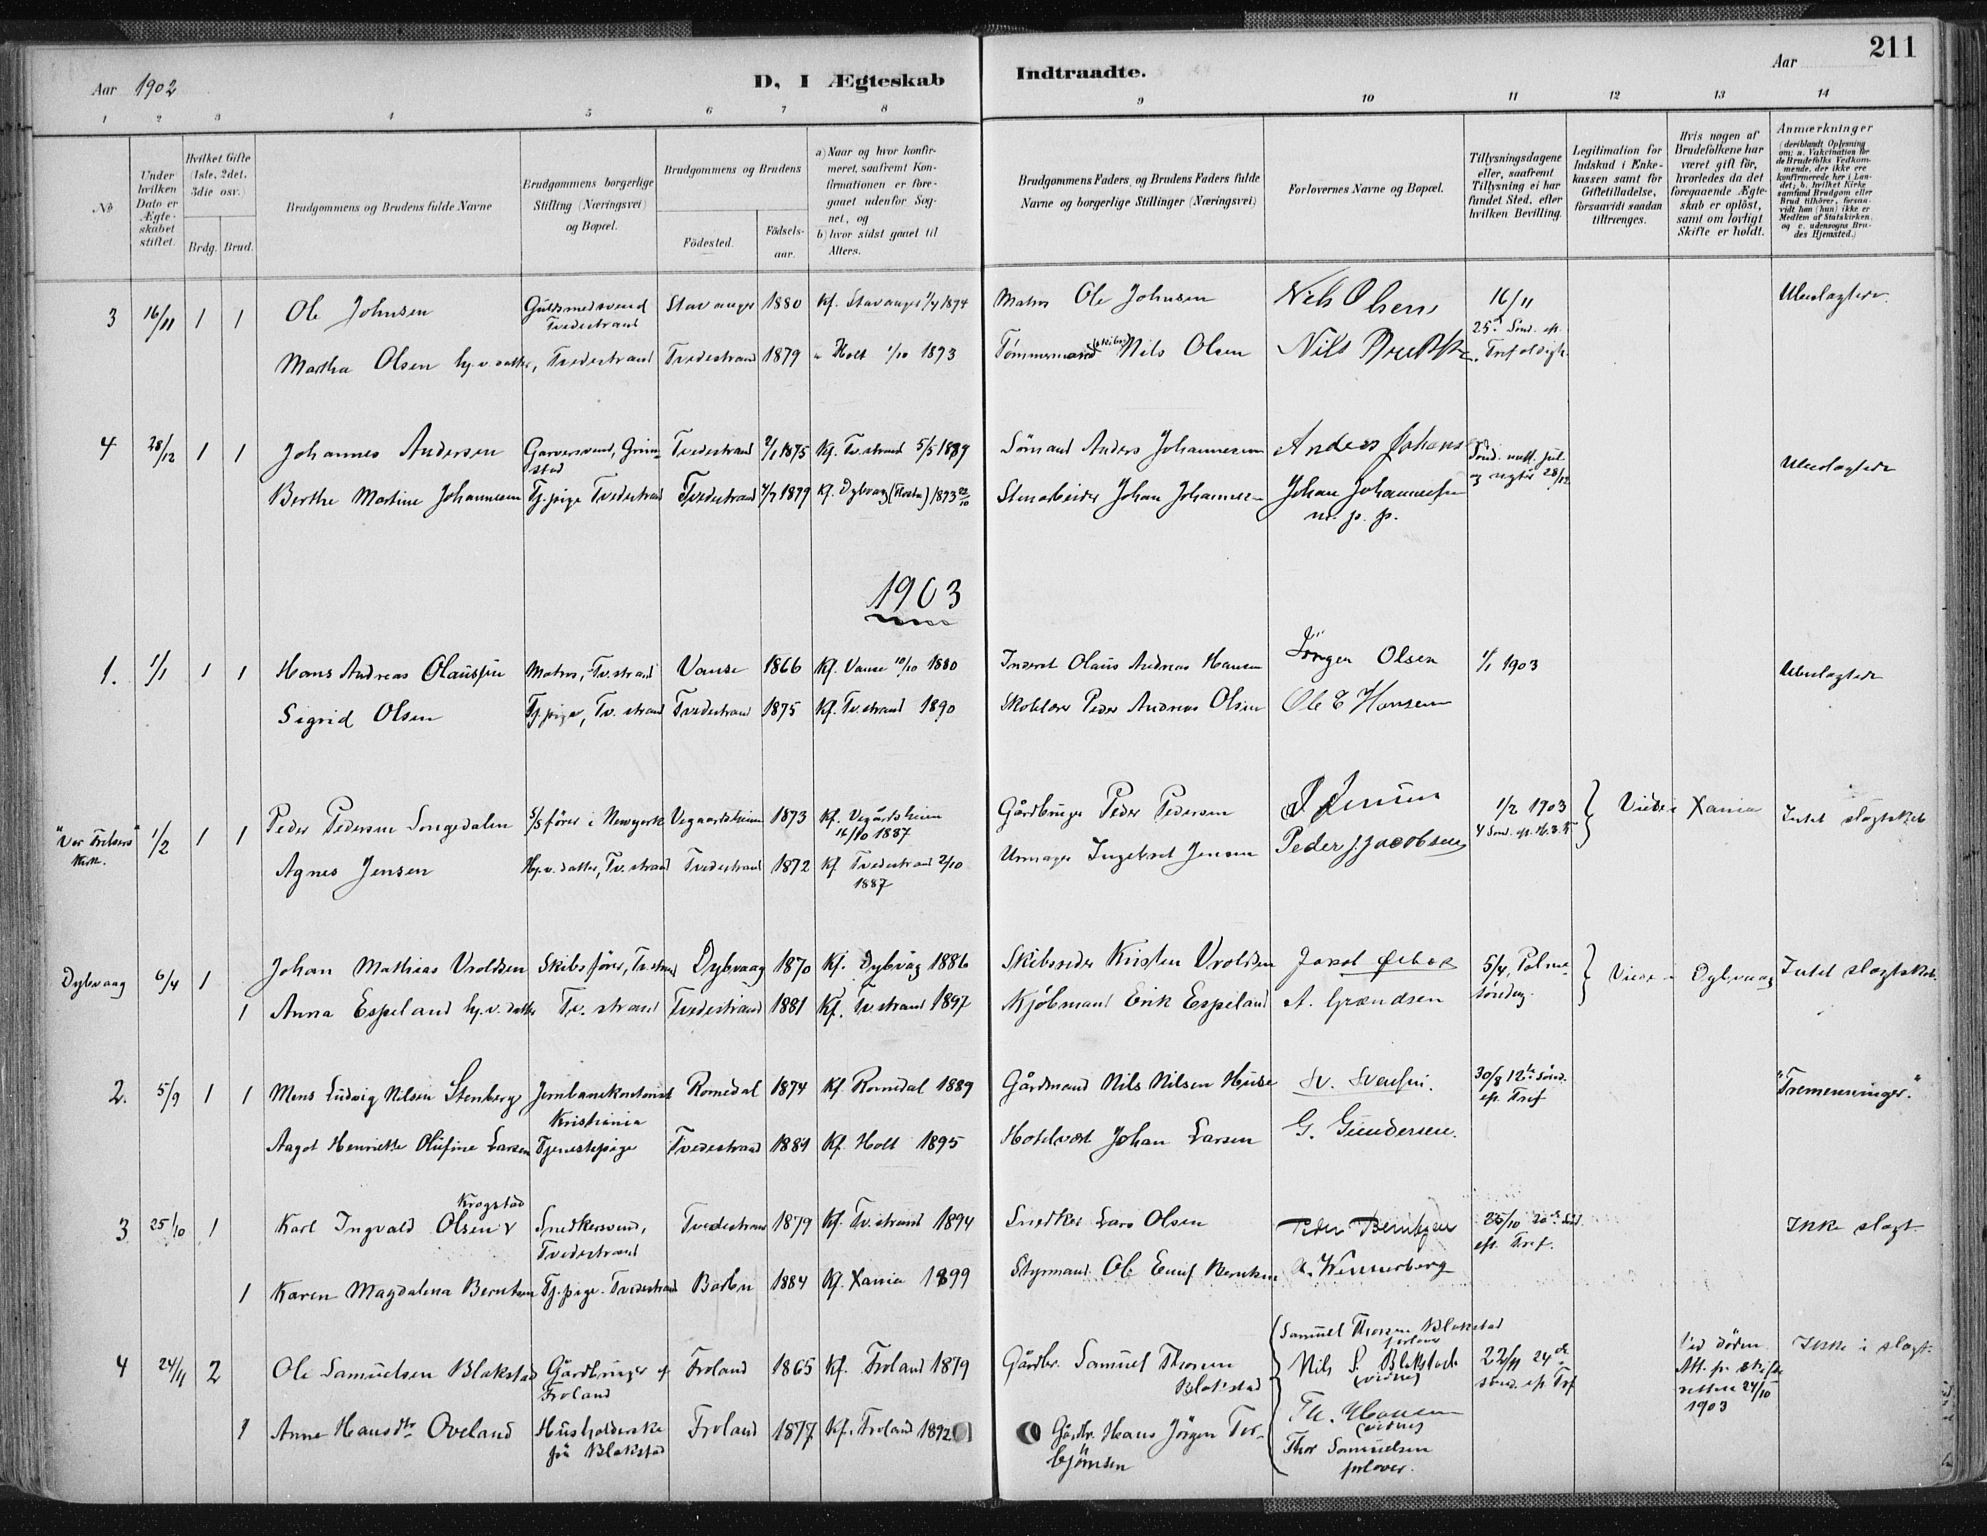 211
Aar 1902
D, I Ægteskab
Indtraadte.
Aar
1 2 3 4 5 6 7 8 9 10 11 12 13 14
No
Under hvilken Dato er Ægteskabet stiftet.
Hvilket Gifte (1ste, 2det, 3die osv.)
Brdg. Brud.
Brudgommens og Brudens fulde Navne
Brudgommens borgerlige Stilling (Næringsvei) og Bopæl.
Brudgommens og Brudens
Födested.
Födselsaar.
a) Naar og hvor konfirmeret, saafremt Konfirmationen er foregaaet udenfor Sognet, og
b) hvor sidst gaaet til Alters.
Brudgommens Faders og Brudens Faders fulde Navne og borgerlige Stillinger (Næringsvei)
Forlovernes Navne og Bopæl.
Tillysningsdagene eller, saafremt Tillysning ei har fundet Sted, efter hvilken Bevilling.
Legitimation for Indskud i Enkekassen samt for Giftetilladelse, forsaavidt saadan tiltrænges.
Hvis nogen af Brudefolkene har været gift för, hvorledes da det foregaaende Ægteskab er oplöst, samt om lovligt Skifte er holdt.
Anmærkninger (deriblandt Oplysning om: a. Vakcination for de Brudefolks Vedkommende, der ikke ere konfirmerede her i Landet; b. hvilket Kirkesamfund Brudgom eller Brud tilhörer, forsaavidt han (hun) ikke er Medlem af Statskirken, og c. udensogns Brudes Hjemsted.)
3 16/11 1 1 Ole Johnsen Guldsmedsvend Tvedestrand Stavanger 1880 Kf. Stavanger 1894 Matros Ole Johnsen Nels Olsen 16/11 Ubeslægtede
Martha Olsen hj.v. datter, Tvedestrand Tvedestrand 1879 " Holt 1/10 1893 Tømmermand Nils Olsen Nils 25. Sönd. ef. Trefoldigh.
4 28/12 1 1 Johannes Andersen Garversvend, Grimstad Tvedestrand 2/1 1875 Kf. Tv.strand 5/5 1889 Sömand Anders Johannesen Anders Johans Sönd. mell. jul og nytår 28/12 Ubeslægtede
Berthe Martine Johannesen Tj.pige Tvedestrand Tvedestrand 4/7 1879 Kf. Dybvaag (Flosta) 1893 Stenarbeider Johan Johannesen Johan Johannesen
m. p. p.
1903
1. 1/1 1 1 Hans Andreas Olaussen Matros, Tv.strand Vanse 1866 Kf. Vanse 10/10 1880 Inderst Olaus Andreas Hansen Jörgen Olsen 1/1 1903 Ubeslægtede
Sigrid Olsen Tj.pige, Tv. strand Tvedestrand 1875 Kf. Tv.strand 1890 Skolelærer Peder Andreas Olsen Ole E Hansen
"Vor Frelsers" Kirk. 1/2 1 1 Peder Pedersen Songedalen S/S fører i Newyork Vegaardsheim 1873 Kf. Vegårdsheim 16/10 1887 Gårdbruger Peder Pedersen J Jensen 1/2 1903 Viede i Xania Intet slægtskab
Agnes Jensen Hj.v. datter, Tv. strand Tvedestrand 1872 Kf Tvedestrand 2/10 1887 Urmager Ingebret Jensen Peder J. Jacobsen 4 Sönd. ef. H.3.K
Dybvaag 6/4 1 Johan Mathias Vrolden Skibsfører, Tv.strand Dybvaag 1870 Kf. Dybvåg 1886 Skibsreder Kristen Vrolden 5/4, Palmesöndag. Viede i Dybvaag Intet slægtskab
1 Anna Espeland hj.v. datter Tv. strand Tvedestrand 1881 Kf. Tv.strand 1897 Kjöbmand Erik Espeland A. Grændsen
2. 5/9 1 1 Mons Ludvig Nilsen Stenberg Jernbanekontorist Kristiania Romedal 1874 Kf Romedal 1889 Gårdmand Nils Nilsen Huse Sv. Svensen. 30/8 12te Sönd. ef. Tref "Tremenninger."
Aagot Henriette Olufine Larsen Tjenestepige Tvedestrand 1881 Kf. Holt 1895 Hotelvært Johan Larsen G. Gundersen.
3 25/10 1 Karl Ingvald Olsen Krogstad Snedkersvend, Tvedestrand Tvedestrand 1879 Kf. Tv.strand 1894 Snedker Lars Olsen Peder Berntzen 25/10 20de Sönd eft. Tref. Ikke slægt.
1 Karen Magdalena Berntsen Tj.pige. Tvedestrand Barbu 1884 Kf. Xania 1899 Styrmand Ole Enuf Berntsen A. Wennerberg
4 24/11 2 Ole Samuelsen Blakstad Gårdbruger af Froland Froland 1865 Kf. Froland 1879 Gårdbr. Samuel Thorsen Blakstad Samuel Thorsen Blakstad forlover 22/11 24de sönd. ef. Tref Ved döden. Att. fr. skifteretten 24/10 1903 Ikke i slægt.
Nils S. Blakstad (vidne)
1 Anne Hansdtr Oveland Husholderske på Blakstad Froland 1877 Kf. Froland 1892 Gårdbr. Hans Jörgen Torbjörnsen Th. Hansen (vidne)
Thor Samuelsen forlover.